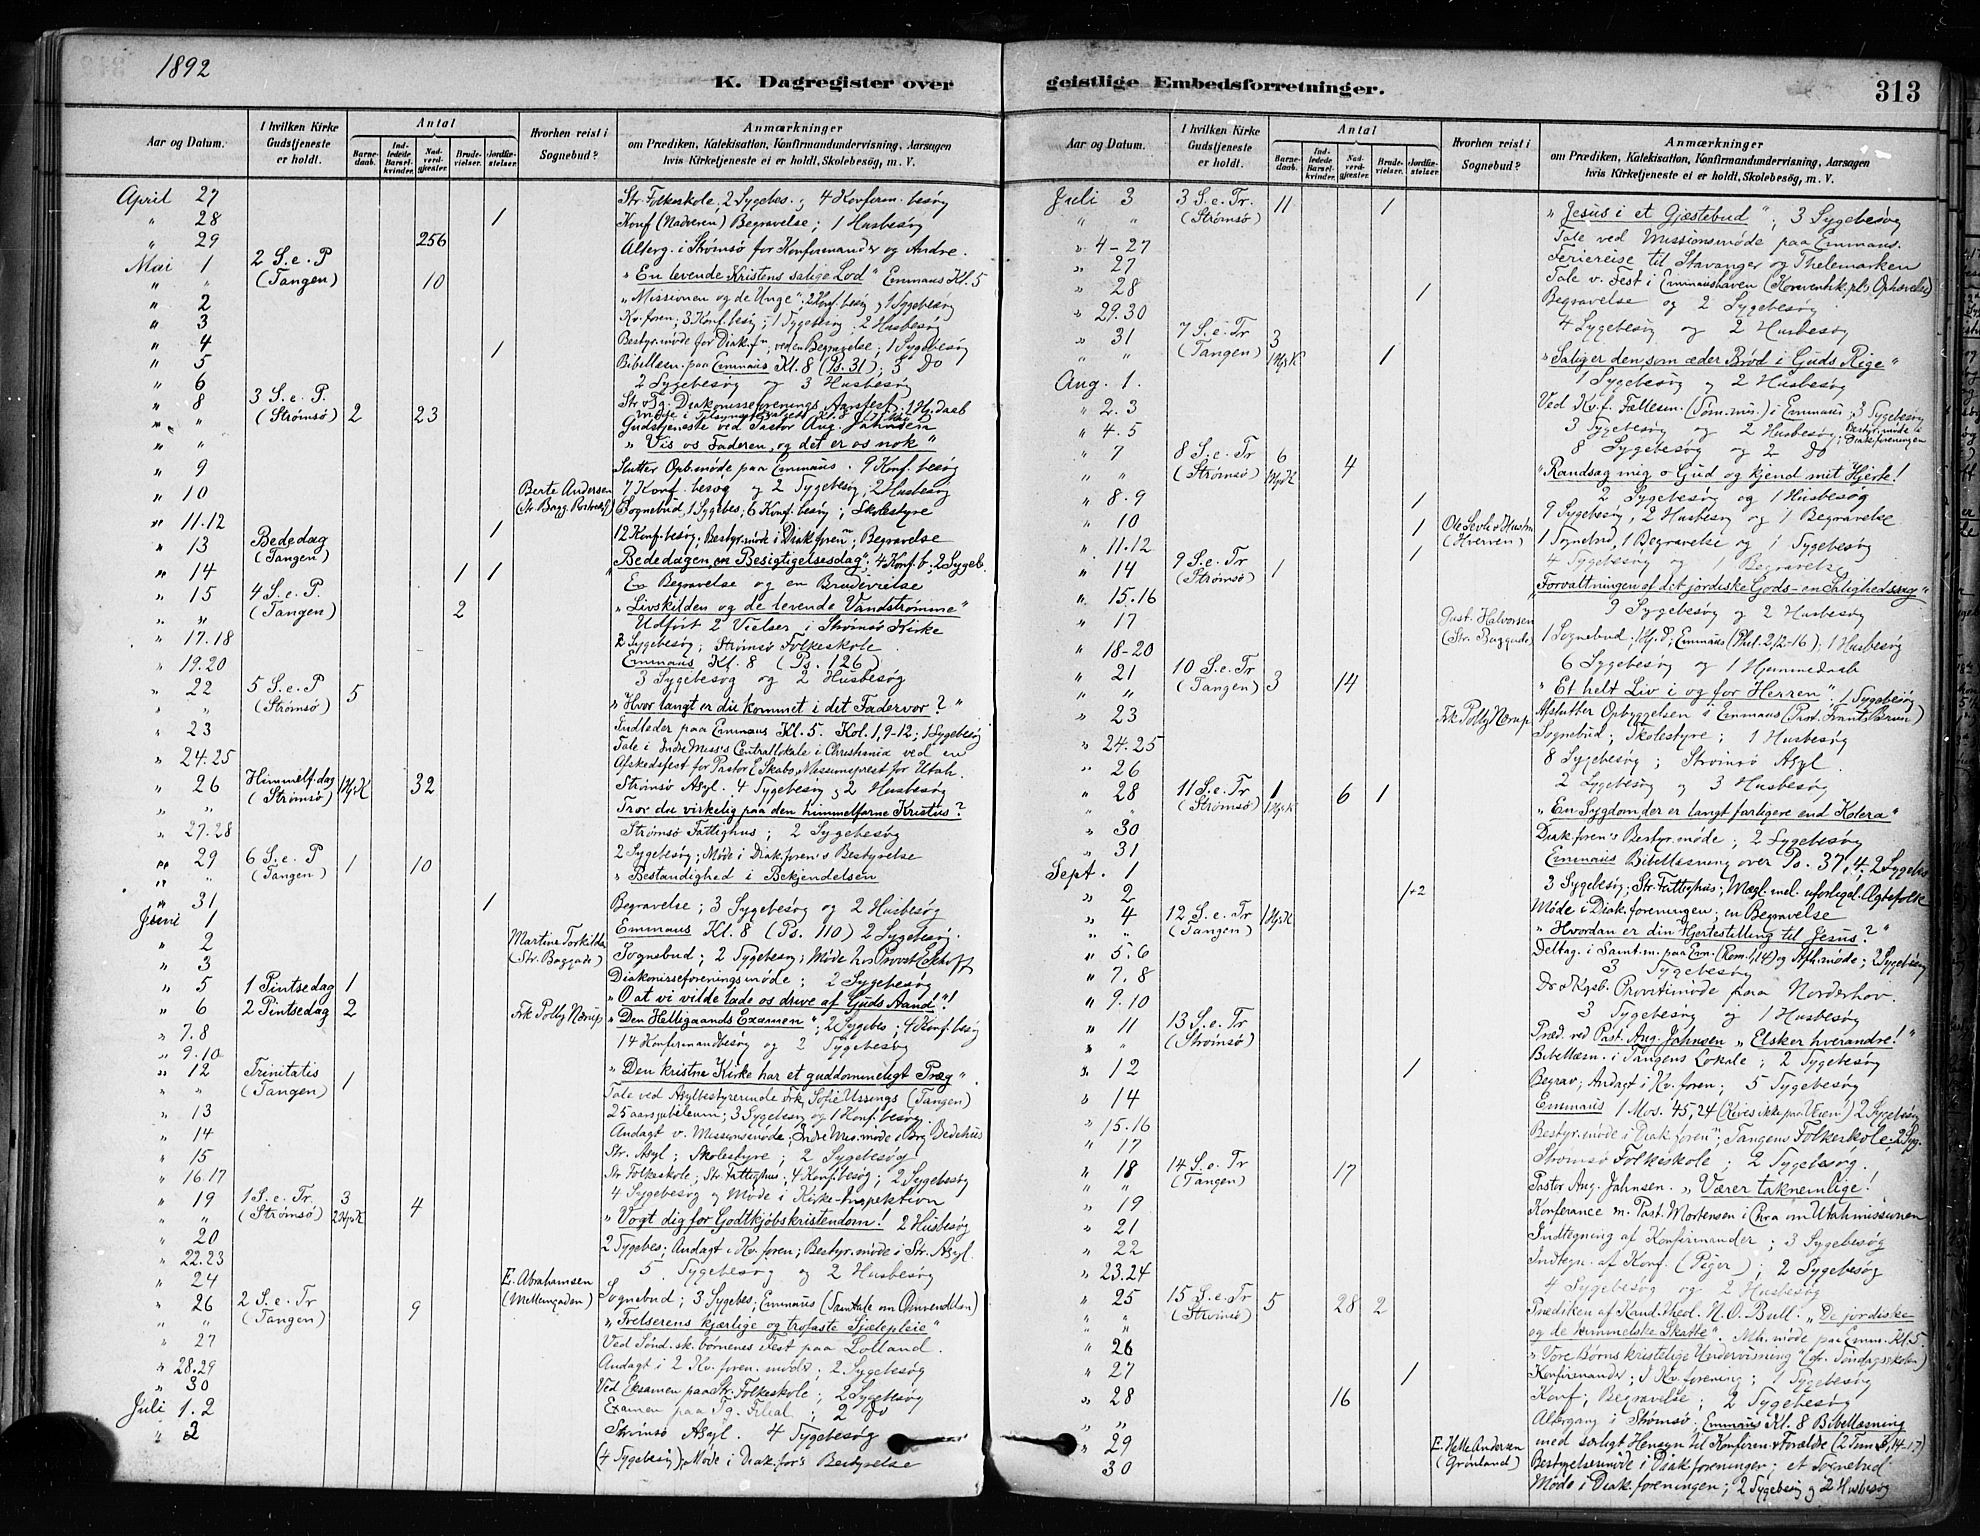 1892
K. Dagregister over geistlige Embedsforretninger.
313
Aar og Datum.
I hvilken Kirke Gudstjeneste er holdt.
Antal
Barnedaab.
Indledede Barselkvinder.
Nadverdgjæster.
Brudevielser.
Jordfæstelser.
Hvorhen reist i Sognebud?
Anmærkninger
om Prædiken, Katekisation, Konfirmandundervisning, Aarsagen
hvis Kirketjeneste ei er holdt, Skolebesøg, m. V.
April 27 Str. Folkeskole, 2 Sygebes., 4 Konfirm. besøg
" 28 1 Konf (Nadveren) Begravelse; 1 Husbesøg
" 29 256 Alterg. i Strømsø for Konfirmander og Andre.
Mai 1 2 S. e. P (Tangen) 10 "En levende Kristens salige Lod" Emmaus Kl. 5
" " "Missionen og de Unge"; 2 Konf. besøg og 1 Sygebesøg
" 2 Kv. foren; 3 Konf. besøg; 1 Sygebesøg. 2 Husbesøg
" 3 Bestyr. møde for Diak. fn; Begravelse; 1 Sygebesøg
" 4 1 Bibellæsn. paa Emmaus Kl. 8 (Ps. 31); 3 Do
" 5 2 Sygebesøg og 3 Husbesøg
" 6 Str. & Tg. Diakonisseforenings Aarsfest; 1 Hj. daab
" 8 3 S. e. P. (Strømsø) 2 23 Gudstjeneste ved Pastor Aug. Jahnsen
" " "Vis os Faderen, og det er os nok"
" " Slutter Opb. møde paa Emmaus. 9 Konf. besøg
" 9 7 Konf. besøg og 2 Sygebesøg, 2 Husbesøg
" 10 Berte Andersen (Str. Bagg.) Sognebud, 1 Sygebes; 6 Konf. besøg; Skolestyre
" 11.12 1 12 Konf. besøg, Bestyr. møde i Diak. fren; Begravelse
" 13 Bededag (Tangen) Bededagen en Besigtigelsesdag"; 4 Konf. b; 2 Sygeb.
" 14 1 1 En Begravelse og en Brudevielse
" 15 4 S. e. P. (Tangen) "Livskilden og de levende Vandstrømme"
" " 2 Udført 2 Vielser i Strømsø Kirke
" 17.18 2 Sygebesøg; Strømsø Folkeskole.
" 19.20 Emmaus Kl. 8 (Ps. 126)
3 Sygebesøg og 2 Husbesøg
" 22 5 S. e. P (Strømsø) 5 "Hvor langt er du kommet i det Fadervor?"
" 23 Indleder paa Emmaus Kl. 5. Kol. 1, 9-12; 1 Sygebesøg
" 24.25 Tale i Indre Miss's Centrallokale i Christiania ved en
Afskedsfest for Pastor E. Skabo, Missionsprest for Utah.
" 26 Himmelf. dag (Strømsø) 1 Hj. K 32 Strømsø Asyl. 4 Sygebesøg og 2 Husbesøg
" " Tror du virkelig paa den himmelfarne Kristus?
" 27.28 Strømsø Fattighus; 2 Sygebesøg
" 29 6 S. e. P (Tangen) 1 10 2 Sygebesøg; Møde i Diak. foren's Bestyrelse
" " "Bestandighed i Bekjendelsen
" 31 1 Begravelse; 3 Sygebesøg og 2 Husbesøg
Juni 1 Emmaus Kl. 8 (Ps. 110) 2 Sygebesøg.
" 2 Martine Torkilds (Str. Baggade) Sognebud; 2 Sygebesøg; Møde hos Provst Eckhoff
" 3 Diakonisseforeningsmøde; 2 Sygebesøg
" 5 1 Pintsedag 1 "O at vi vilde lade os drive af Guds Aand!"
" 6 2 Pintsedag 2 Frk Polly Nærup "Den Helligaands Examen"; 2 Sygebes; 4 Konf. besøg
" 7.8 14 Konfirmandbesøg og 2 Sygebesøg
" 9.10
" 12 Trinitatis (Tangen) 1 "Den kristne Kirke har et guddommeligt Præg".
" " Tale ved Asylbestyrerinde Frk Sofie Ussings (Tangen)
" 13 25 aarsjubilæum; 3 Sygebesøg og 1 Konf. besøg
" 14 Andagt v. Missionsmøde; Indre Mis. møde i Brg. Bedehus
" 15 Str. Asyl; Skolestyre; 2 Sygebesøg
" 16.17 Str. Folkeskole; Str. Fattighus; 4 Konf. besøg; 2 Sygebesøg
" 19 1 S. e. Tr. (Strømsø) 3 2 Hj. K 4 4 Sygebesøg og Møde i Kirke-Inspektion
" " "Vogt dig for Godtkjøbskristendom! 2 Husbesøg
" 20 2 Sygebes; Andagt i Kv. foren; Bestyr. møde i Str. Asyl.
" 22.23 5. Sygebesøg og 2 Husbesøg
" 24 E. Abrahamsen (Mellemgaden) Sognebud; 3 Sygebes, Emmaus (Samtale om Omvendelsen)
" 26 2 S. e. Tr (Tangen) 9 "Frelserens kjærlige og trofaste Sjælepleie"
" 27 Ved Sønd. sk. børnenes Fest paa Lolland.
" 28.29 Andagt i 2 Kv. foren. møder; 2 Sygebesøg
" 30 Ved Examen paa Str. Folkeskole; 2 Sygebesøg
Juli 1.2 Examen paa Tg. Filial; 2 Do
" 2 Strømsø Asyl. 4 Sygebesøg
(4 Sygebesøg), Møde i Diak. for's Bestyrelse
Aar og Datum.
I hvilken Kirke Gudstjeneste er holdt.
Antal
Barnedaab.
Indledede Barselkvinder.
Nadverdgjæster.
Brudevielser.
Jordfæstelser.
Hvorhen reist i Sognebud?
Anmærkninger
om Prædiken, Katekisation, Konfirmandundervisning, Aarsagen
hvis Kirketjeneste ei er holdt, Skolebesøg, m. V.
Juli 3 3 S. e. Tr. (Strømsø) 11 1 "Jesus i et Gjæstebud"; 3 Sygebesøg
" " Tale ved Missionsmøde paa Emmaus.
" 4-27 Feriereise til Stavanger og Thelemarken
" 27 Tale v. Fest i Emmaushaven (Konventik. pl's Ophævelse)
" 28 1 Begravelse og 2 Sygebesøg
" 29.30 4 Sygebesøg og 2 Husbesøg
" 31 7 S. e. Tr (Tangen) 3 1 Hj. K 1 "Salig er den, som æder Brød i Guds Rige"
" " 1 Sygebesøg og 2 Husbesøg
Aug. 1. Ved Kv. f. Fællesm. (Søm. mis.) i Emmaus; 3 Sygebesøg
" 2.3 3 Sygebesøg og 2 Husbesøg; Bestyr. møde i Diak. foreningen
" 4.5 8 Sygebesøg og 2 Do
" 7 8 S. e. Tr (Strømsø) 6 1 Hj. K 4 "Randsag mig o Gud og kjend mit Hjerte!
" " 2 Sygebesøg og 1 Husbesøg
" 8.9 1 9 Sygebesøg, 2 Husbesøg og 1 Begravelse
" 10 1 (Hverven) 1 Sognebud, 1 Begravelse og 1 Sygebesøg
" 11.12 1 4 Sygebesøg og 1 Begravelse
" 14 9 S. e. Tr (Strømsø) 1 "Forvaltningen af det jordiske Gods - en Salighedssag"
" 15.16 9 Sygebesøg og 2 Husbesøg
" 17 Gust. Halvorsen (Str. Baggade) 1 Sognebud. 1 Hj. d; Emmaus (Phil. 2, 12-16). 1 Husbesøg
" 18-20 6 Sygebesøg og 1 Hjemmedaab
" 21 10 S. e. Tr (Tangen) 3 14 "Et helt Liv i og for Herren". 1 Sygebesøg
" " Afslutter Opbyggelsen i Emmaus (Prof. Frantz Bruun)
" 23 Frk Polly Nærup Sognebud; Skolestyre; 1 Husbesøg
" 24.25 8 Sygebesøg; Strømsø Asyl.
" 26 2 Sygebesøg og 3 Husbesøg
" 28 11 S. e. Tr (Strømsø) 1 1 Hj. K 6 1 "En Sygdom, der er langt farligere end Kolera"
" 30 Diak. foren's Bestyr. møde; 2 Sygebesøg
" 31 Emmaus Bibellæsning over Ps. 37, 4; 2 Sygebes
Sept. 1 3 Sygebesøg; Str. Fattighus; Mægl. mel. uforligel. Ægtefolk
" 2 1+2 Møde i Diak. foreningen; en Begravelse
" 4 12 S. e. Tr (Tangen) 1 Hj. K "Hvordan er din Hjertestilling til Jesus?"
" " Deltag. i Samt. m. paa Em. (Rom. 1, 14) og Afh. møde; 2 Sygebesøg
" 5.6 3 Sygebesøg
" 7.8 Dr. & Kgsb. Provstimøde paa Norderhov.
" 9.10 3 Sygebesøg og 1 Husbesøg
" 11 13 S. e. Tr (Strømsø) Præd. ved Past. Aug. Jahnsen "Elsker hverandre!"
" " Bibellæsn. i Tangens Lokale; 2 Sygebesøg
" 12 1 Begrav; Andagt i Kv. foren; 5 Sygebesøg
" 14 Emmaus 1 Mos. 45, 24 (Kives ikke paa Veien!) 2 Sygebesøg
" 15.16 Bestyr. møde i Diak. foren; Tangens Folkeskole; 2 Syg.
" 17 Strømsø Folkeskole; 2 Sygebesøg.
" 18 14 S. e. Tr (Tangen) 17 Pastor Aug. Jahnsen. "Værer taknemlige!
" 19 Konferance m. Past. Mortensen i Chra om Utahmissionen
" 21 Indtegning af Konfirmander; 3 Sygebesøg
" 22 Indtegn. af Konf. (Piger); 2 Sygebesøg
" 23.24 4 Sygebesøg og 2 Husbesøg
" 25 15 S. e. Tr (Strømsø) 5 28 2 Prædiken af Kand. theol. N. O. Bull. "De jordiske
" " og de himmelske Skatte". Mh. møde paa Emm. Kl 5.
" 26 "Vore Børns kristelige Undervisning" (gr. Søndagsskolen)
" 27 1 Konfirmander; 1 Kv. forening; 1 Sygebesøg
" 28 16 Konf; Begravelse; 2 Sygebesøg
" " Altergang i Strømsø; Emmaus Kl. 8 Bibellæsning
" 29 E. Helle Andersen (Grønland) med særligt Hensyn til Konfirm. & Forældre (2 Tim 3, 14-17)
" 30 Bestyrelsesmøde i Diak. foreningen; et Sognebud
Møde i Diak. foreningen; 2 Sygebesøg og 2 Husbesøg